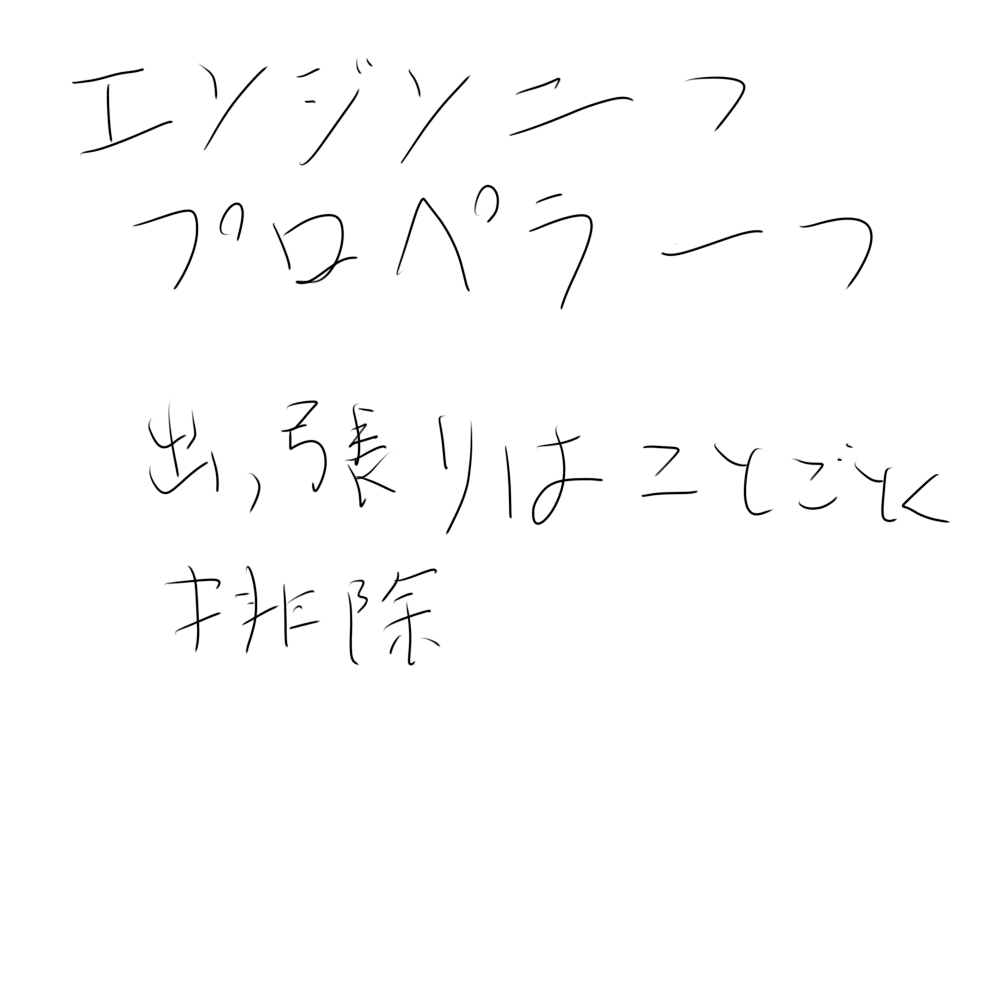 エンジン二つ
プロペラ一つ
出っ張りはことごとく
排除